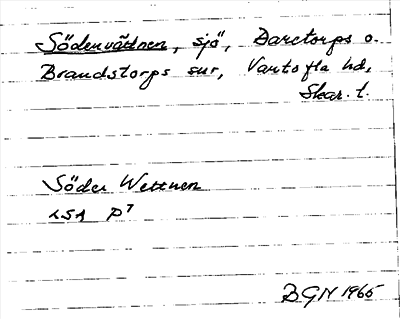 Södervättnen, sjö, Daretorps o.
Brandstorps snr, Vartofta hd,
Skar. l.
Söder Wettnen
LSA P7
BGN 1965